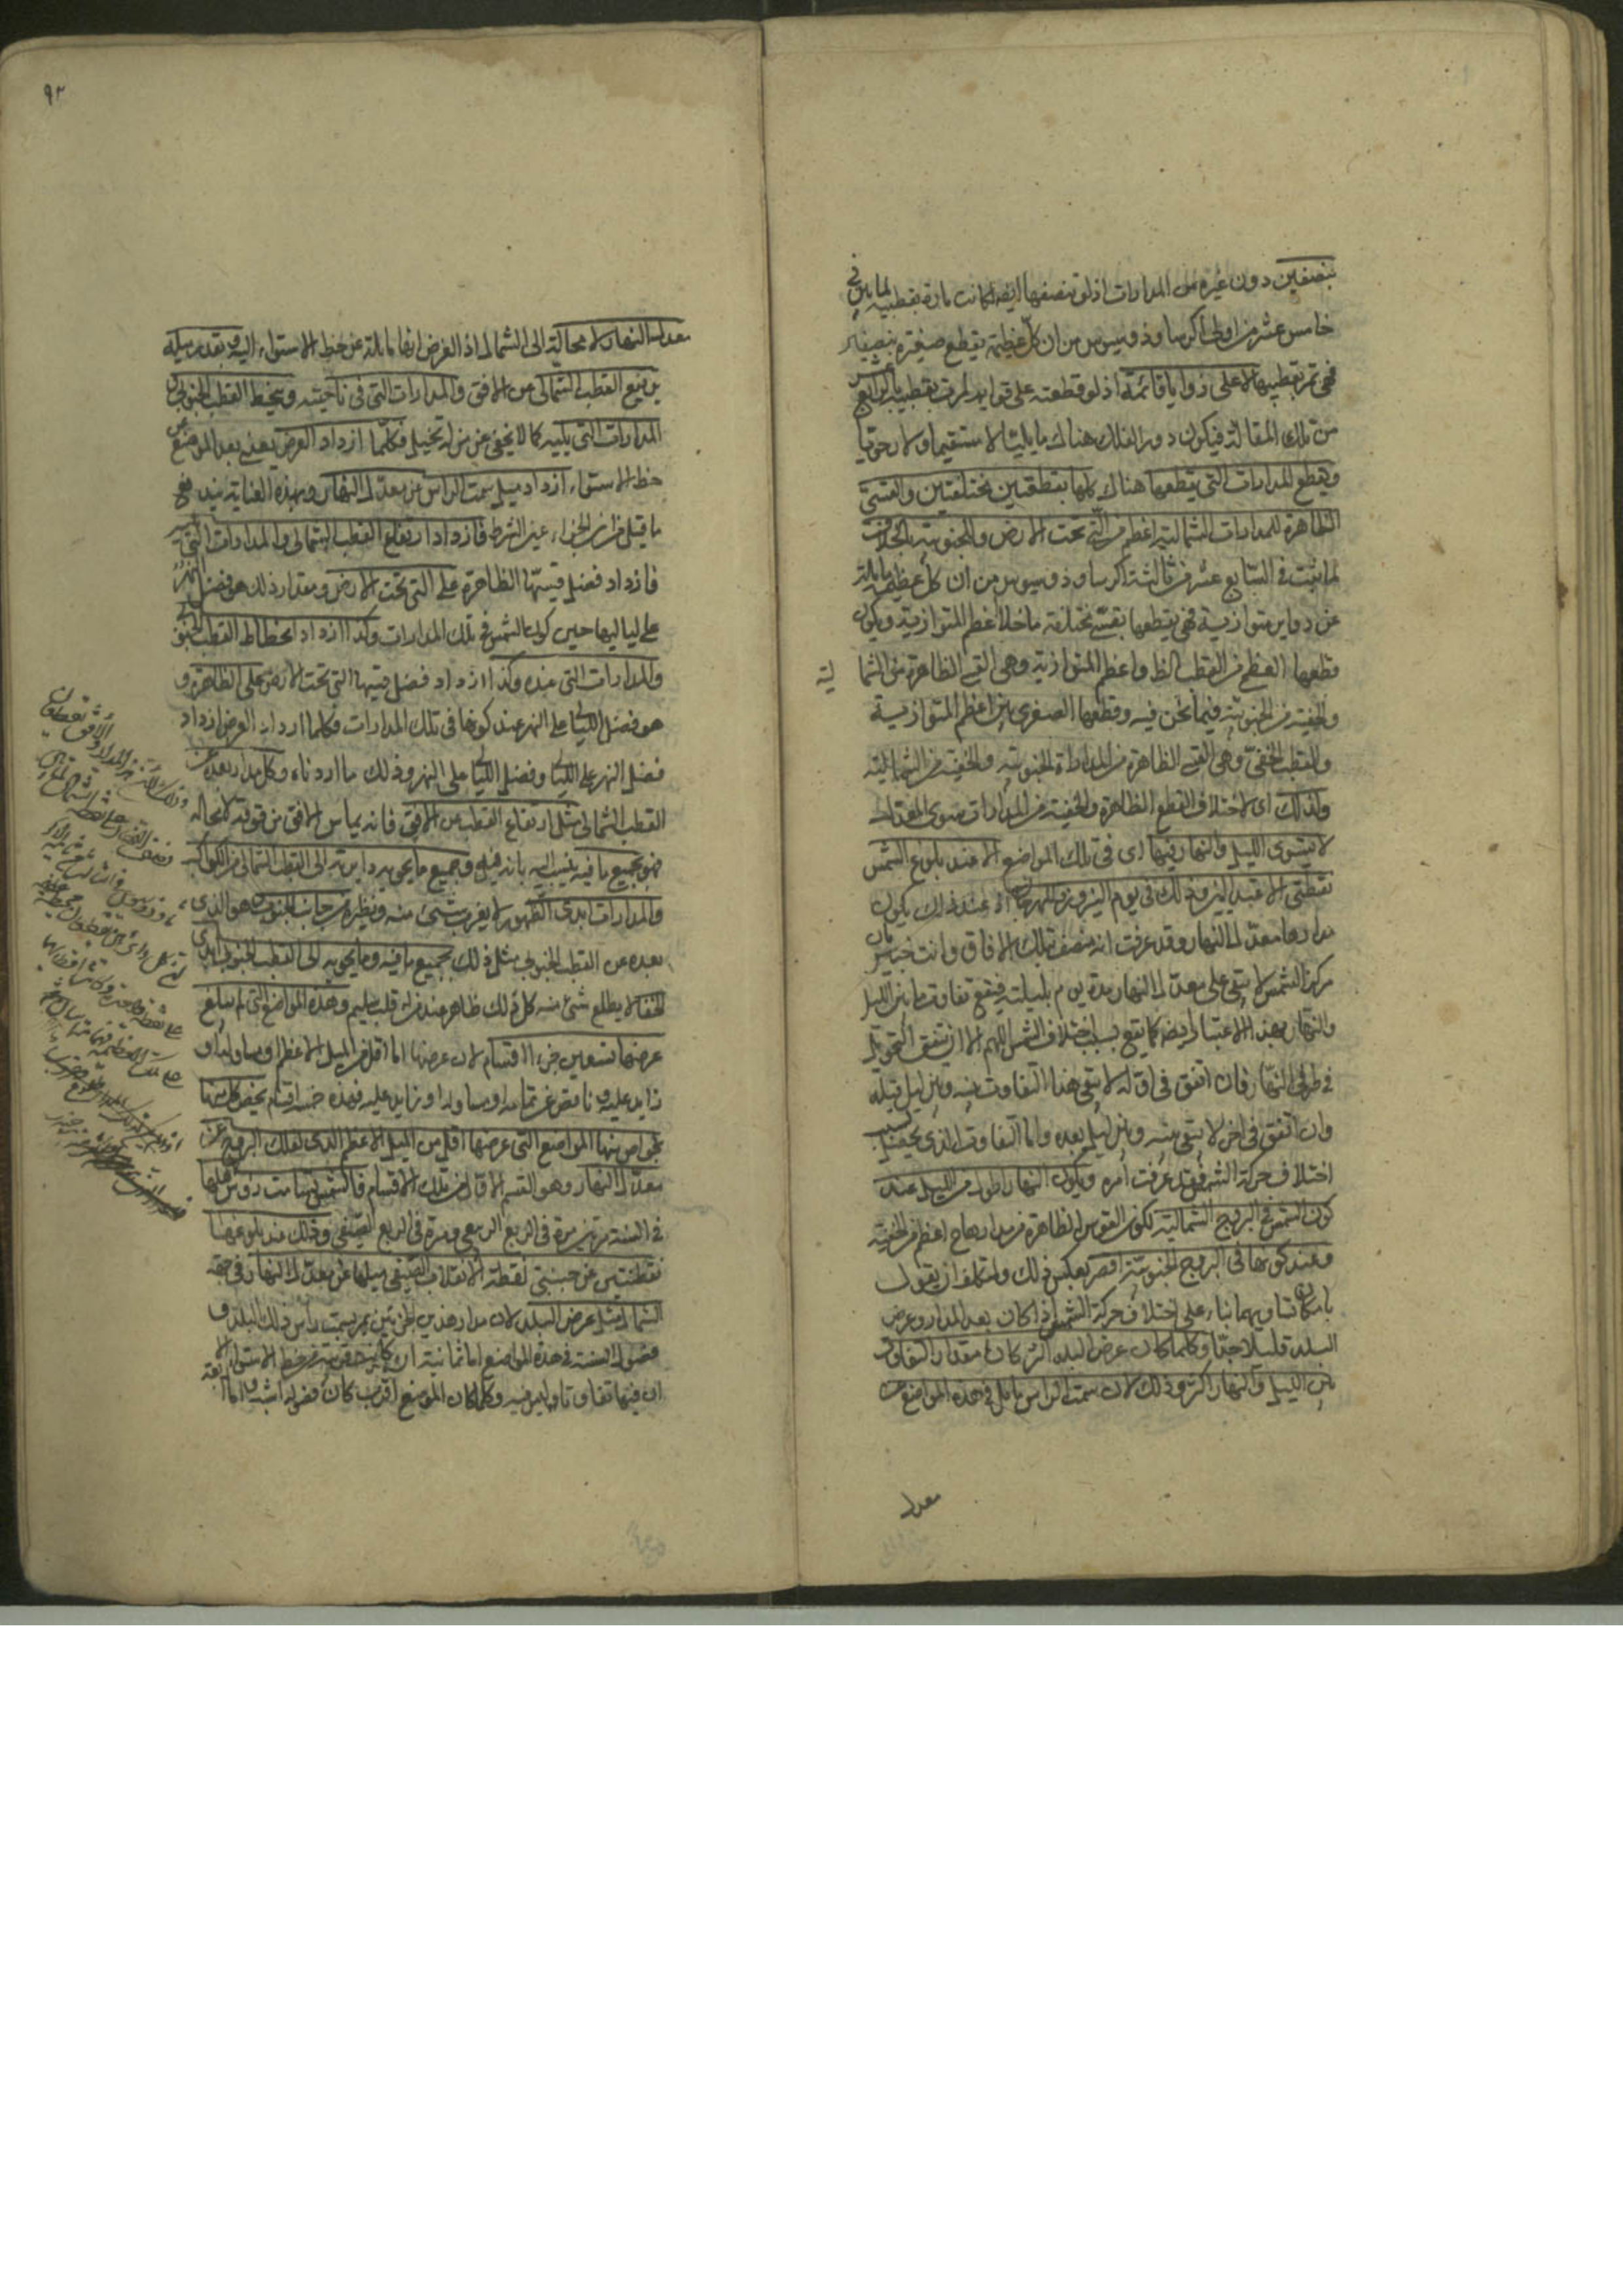 بنصفين دون غيره من المدارات اذ لو تنصفها ايضا لكانت مارة بقطبيه لما بين في
خامس عشر من اولى اكر ساوذوسيوس من ان كل عظيمة يقطع صغيرة بنصفين
فهي تمر بقطبيها لا على زوايا قائمة اذ لو قطعته على قوايم لمرت بقطبيه بالرابع عشر
من تلك المقالة فيكون دور الفلك هناك مايليا لا مستقيما ولا رحويا
ويقطع المدارات التي يقطعها هناك كلها بقطعتين مختلفتين والقسي
الظاهرة للمدارات الشمالية اعظم من التي تحت الارض والجنوبية بالخلاف
لما يثبت في السابع عشر من ثالثة اكر ساوذوسيوس من ان كل عظيمة مايلة
عن دواير متوازية فهي يقطعها بقسي مختلفة ما خلا اعظم المتوازية ويكون
قطعها العظمى من القطب الظ واعظم المتوازية وهي القسي الظاهرة من الشما
لية
والخفية من الجنوبية فيما نحن فيه وقطعها الصغرى بين اعظم المتوازية
والقطب الخفي وهي القسي الظاهرة من المدارات الجنوبية والخفية من الشمالية
ولذلك اي لاختلاف القطع الظاهرة والخفية من المدارات سوى المعدل
لا يستوى الليل والنهار فيها اى في تلك المواضع الا عند بلوغ الشمس
نقطتي الاعتدالين وذلك في يوم النيروز والمهرجان اذ عند ذلك يكون
مدارها معدل النهار وقد عرفت انه منصف بتلك الافاق وانت خبير بان
مركز الشمس لا يبقى على معدل النهار مدة يوم بليلته فيقع تفاوت ما بين الليل
والنهار بهذا الاعتبار ايضا كما يقع بسبب اختلاف الشمس اللهم الا ان يتفق التحويل
في طرفي النهار فان اتفق في اوله لا يبقى هذا التفاوت بينه وبين ليل قبله
وان اتفق في اخره لا يبقى بينه وبين ليل بعده واما التفاوت الذي يحصل بسبب
اختلاف حركة الشمس فقد عرفت امره ويكون النهار اطول من الليل عند
كون الشمس في البروج الشمالية لكون القوس الظاهرة من مدارها ح اعظم من الخفية
وعند كونها في البروج الجنوبية اقصر بعكس ذلك ولمتكلف ان يقول
بامكان تساويهما بناء على اختلاف حركة الشمس اذا كان بعد المدار وعرض
البلد قليلا جدا وكلما كان عرض البلد اكثر كان مقدار التفاوت
بين الليل والنهار اكثر وذلك لان سمت الراس مايل في هذه المواضع عن
معدل
٩٣
معدل النهار لا محالة الى الشمال اذ الغرض انها مايلة عن خط الاستواء اليه وبقدر ميله
يرتفع القطب الشمالي عن الافق والمدارات التي في ناحيته وينحط القطب الجنوبي و
المدارات التي يليه كما لا يخفى عن من له تخيل فكلما ازداد العرض يعني بعد الموضع عن
خط الاستواء ازداد ميل سمت الراس من معدل النهار وبهذه العناية يندفع
ما قيل من ان الجزاء عين الشرط فازداد ارتفاع القطب الشمالي والمدارات التي
فازداد فضل قسيها الظاهرة على التي تحت الارض ومقدار ذلك هو فضل النهر
على لياليها حين كون الشمس في تلك المدارات وكذا ازداد انحطاط القطب الجنوبي
والمدارات التي عنده وكذا ازداد فضل قسيها التي تحت الارض على الظاهرة و
هو فضل الليالي على النهر عند كونها في تلك المدارات فكلما ازداد العرض ازداد
فضل النهر على الليالي وفضل الليالي على النهر وذلك ما اردناه وكل مدار بعده عن
القطب الشمالي مثل ارتفاع القطب عن الافق فانه يماس الافق من فوقه لا محالة
فهو بجميع ما فيه وجميع ما يحويه دايرته الى القطب الشمالي من الكواكب
والمدارات ابدى الظهور لا يغرب شيء منه ونظيره من جانب الجنوب وهو الذي
بعده عن القطب الجنوبي مثل ذلك بجميع ما فيه وما يحويه الى القطب الجنوبي ابدى
الخفا لا يطلع شيء منه كل ذلك ظاهر عند من له قلب سليم وهذه المواضع التي لم يبلغ
عرضها تسعين جزءا اقسام لان عرضها اما اقل من الميل الاعظم او مساو له او
زايد عليه وناقص عن تمامه او مساو له او زايد عليه فهذه خمسة اقسام يختص كل منها
بخواص منها المواضع التي عرضها اقل من الميل الاعظم الذي لفلك البروج عن
معدل النهار وهو القسم الاول من تلك الاقسام فالشمس يسامت رؤس اهلها
في السنة مرتين مرة في الربع الربيعي ومرة في الربع الصيفي وذلك عند بلوغها
نقطتين عن جنبتي نقطة الانقلاب الصيفي ميلها عن معدل النهار في جهة
الشمال مثل عرض البلد لان مدار هذين الجزئين يمر بسمت راس ذلك البلد و
فصول السنة في هذه المواضع اما ثمانية ان كانت قريبة من خط الاستواء الا
ان فيها تفاوتا وليس فيه وكلما كان الموضع اقرب كان فصوله اشبه واما اربعة